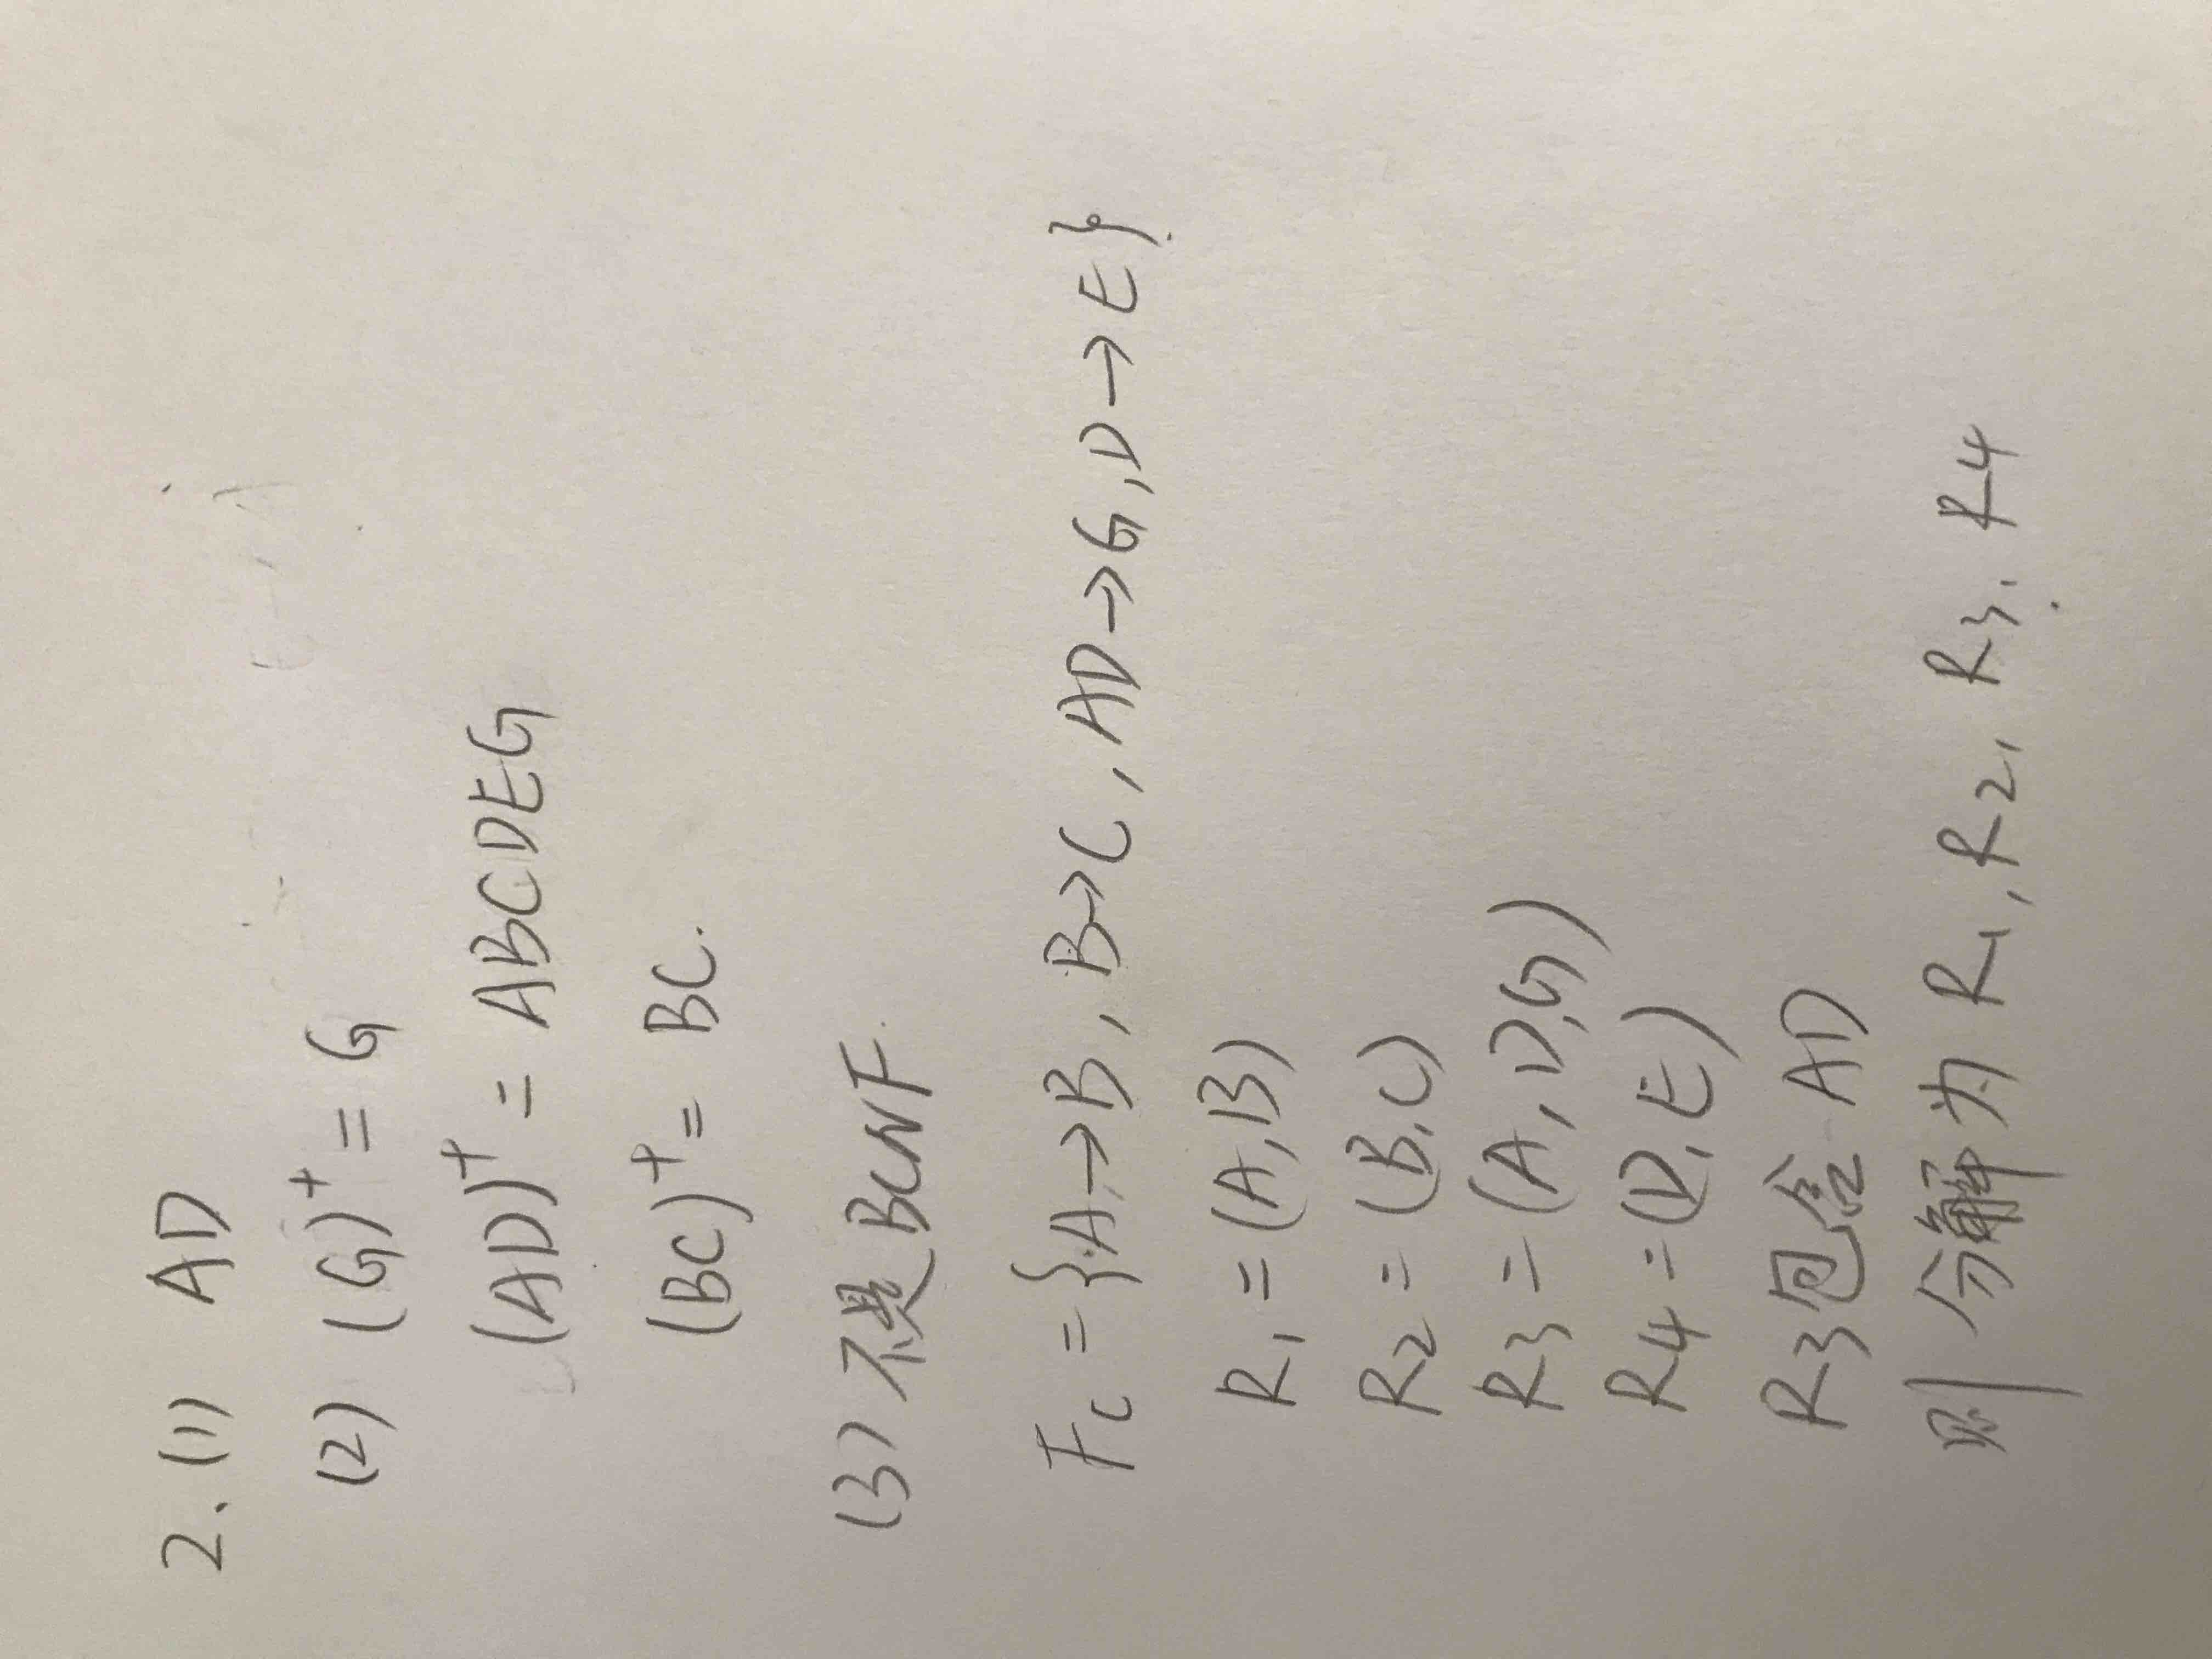 2、(1) AD
(2) (G)⁺ = G
(AD)⁺ = ABCDEG
(BC)⁺ = BC.
(3) 不是BCNF.
Fc = {A→B, B→C, AD→G, D→E}
R₁ = (A,B)
R₂ = (B,C)
R₃ = (A,D,G)
R₄ = (D,E)
R₃包含AD
则分解为 R₁, R₂, R₃, R₄